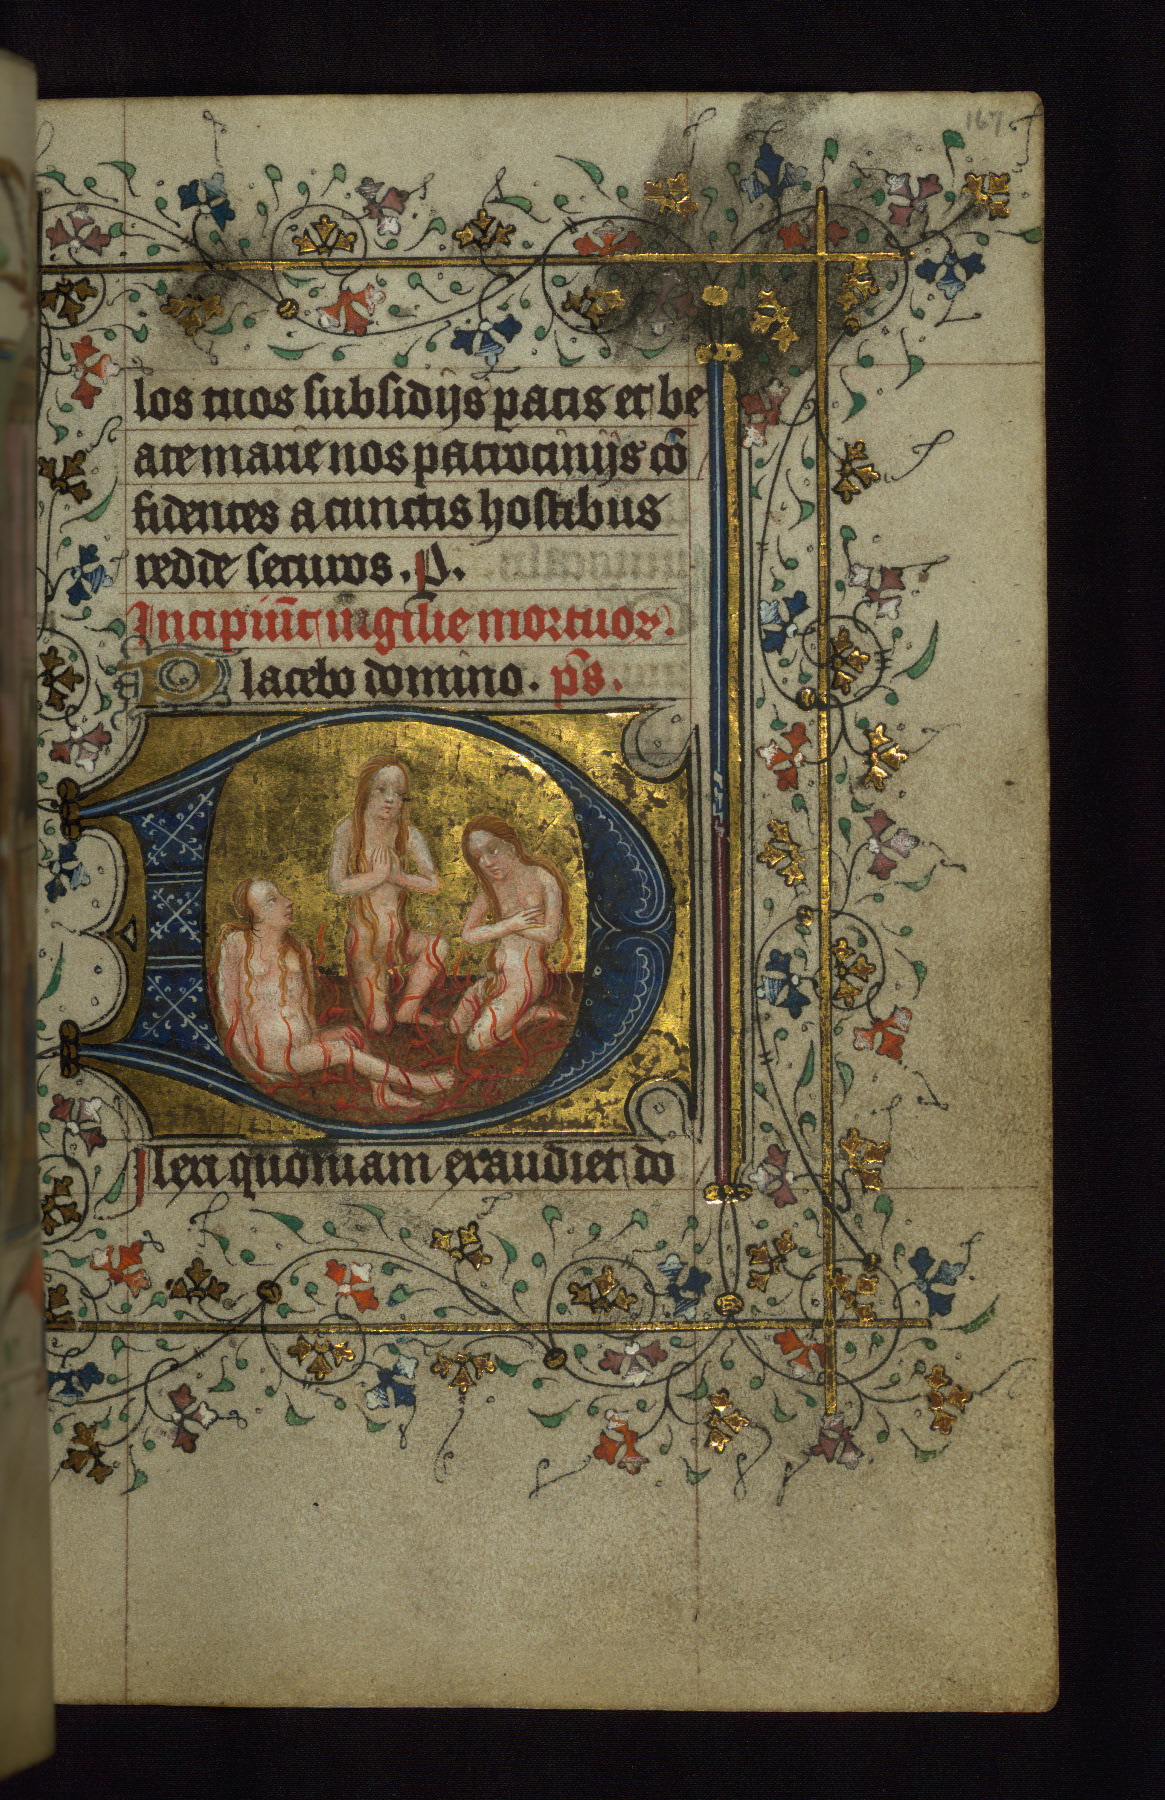 167
los tuos subsidijs pacis et be
ate marie nos patrocinijs cō
fidentes a cunctis hostibus
redde securos . P .
Incipiūt vigilie mortuoꝝ.
Placebo domino . ps̄ .
Dilexi quoniam exaudiet do